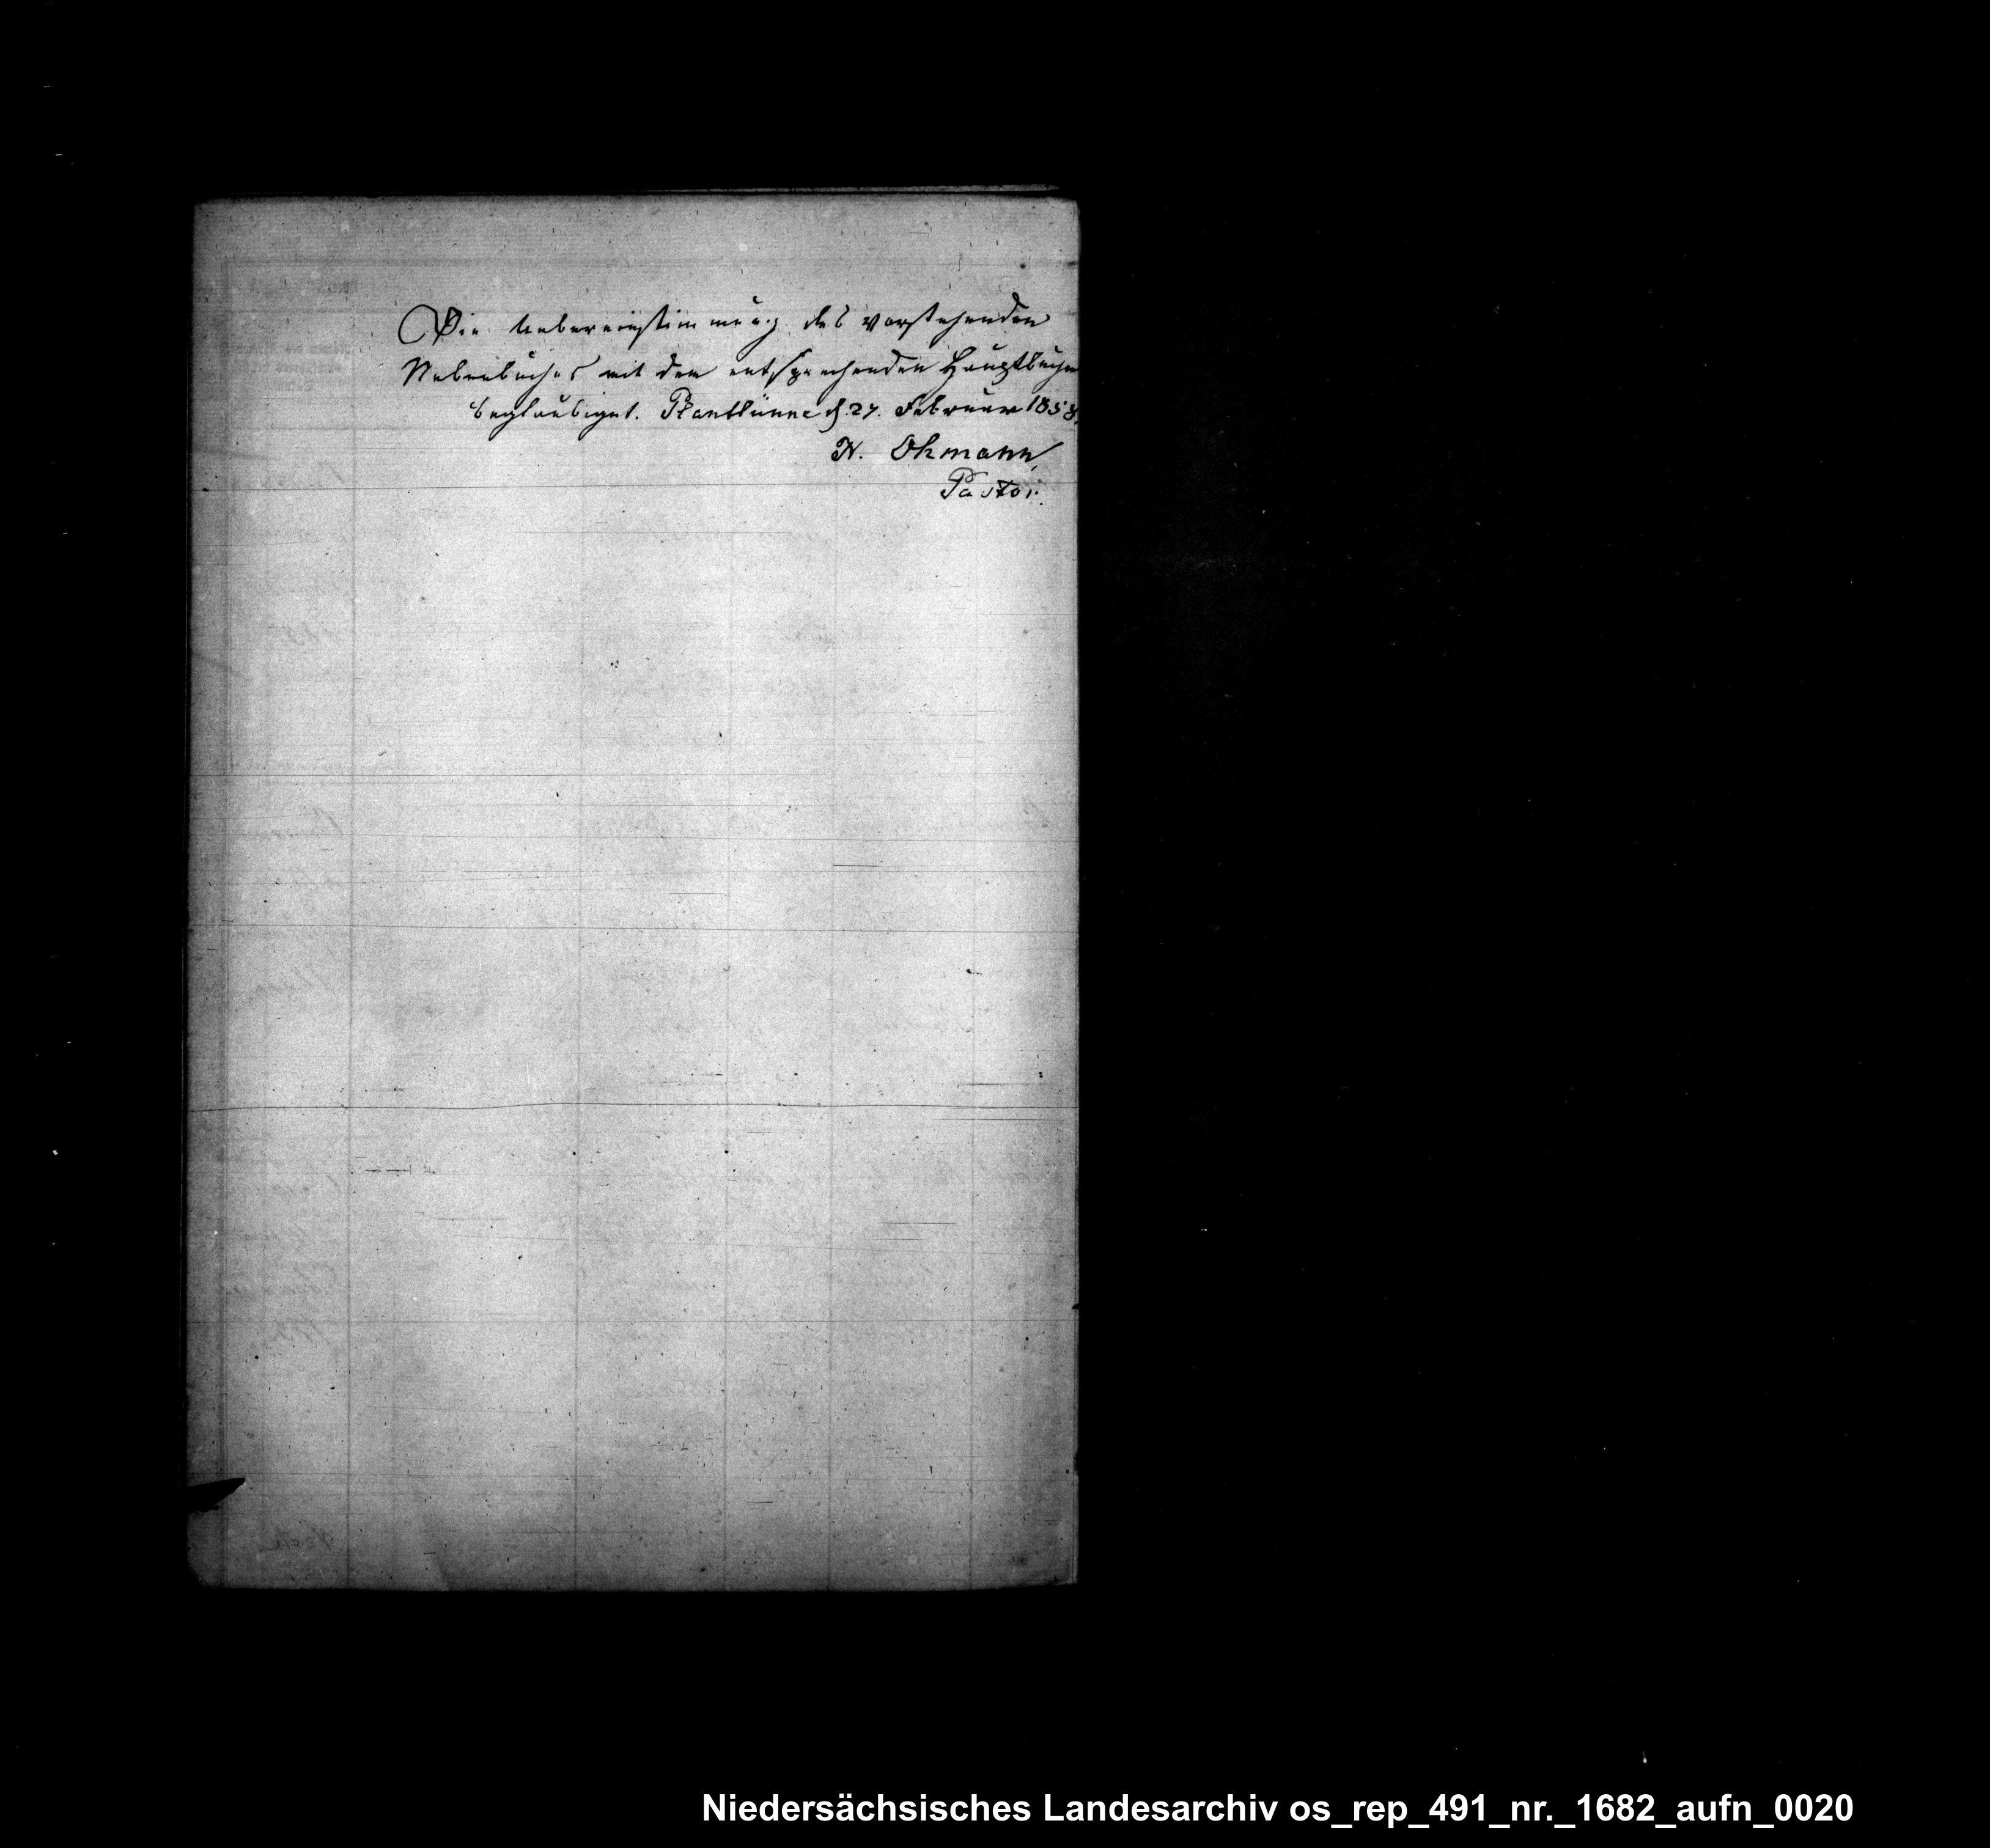 Die Uebereinstimmung des vorstehenden
Nebenbuches mit dem entsprechenden Hauptbuche
beglaubiget. Plantlünne d. 27. Februar 1858.
H. Ohmann
Pastor.
Niedersächsisches Landesarchiv os_rep_491_nr._1682_aufn_0020